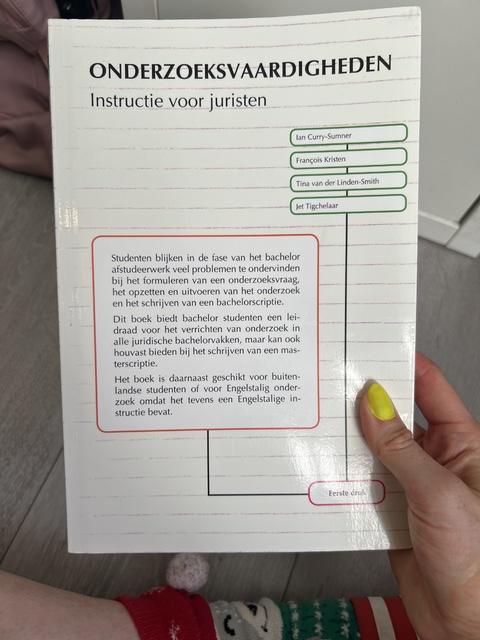 ONDERZOEKSVAARDIGHEDEN
Instructie voor juristen
Ian Curry-Sumner
François Kristen
Tina van der Linden-Smith
Jet Tigchelaar
Studenten blijken in de fase van het bachelor
afstudeerwerk veel problemen te ondervinden
bij het formuleren van een onderzoeksvraag,
het opzetten en uitvoeren van het onderzoek
en het schrijven van een bachelorscriptie.
Dit boek biedt bachelor studenten een lei-
draad voor het verrichten van onderzoek in
alle juridische bachelorvakken, maar kan ook
houvast bieden bij het schrijven van een mas-
terscriptie.
Het boek is daarnaast geschikt voor buiten-
landse studenten of voor Engelstalig onder-
zoek omdat het tevens een Engelstalige in-
structie bevat.
Eerste druk